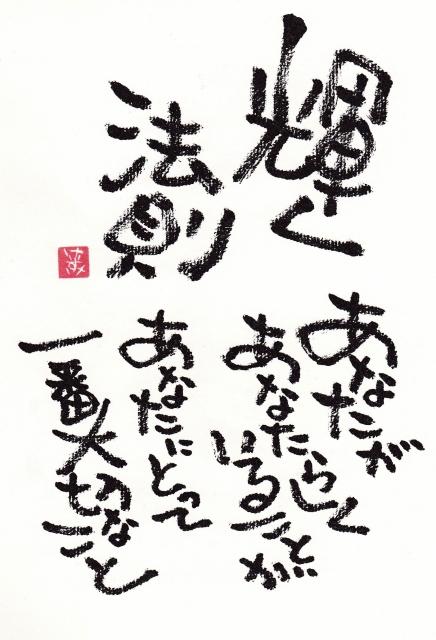 輝く
法則
あなたが
あなたらしく
いることが
あなたにとって
一番大切なこと